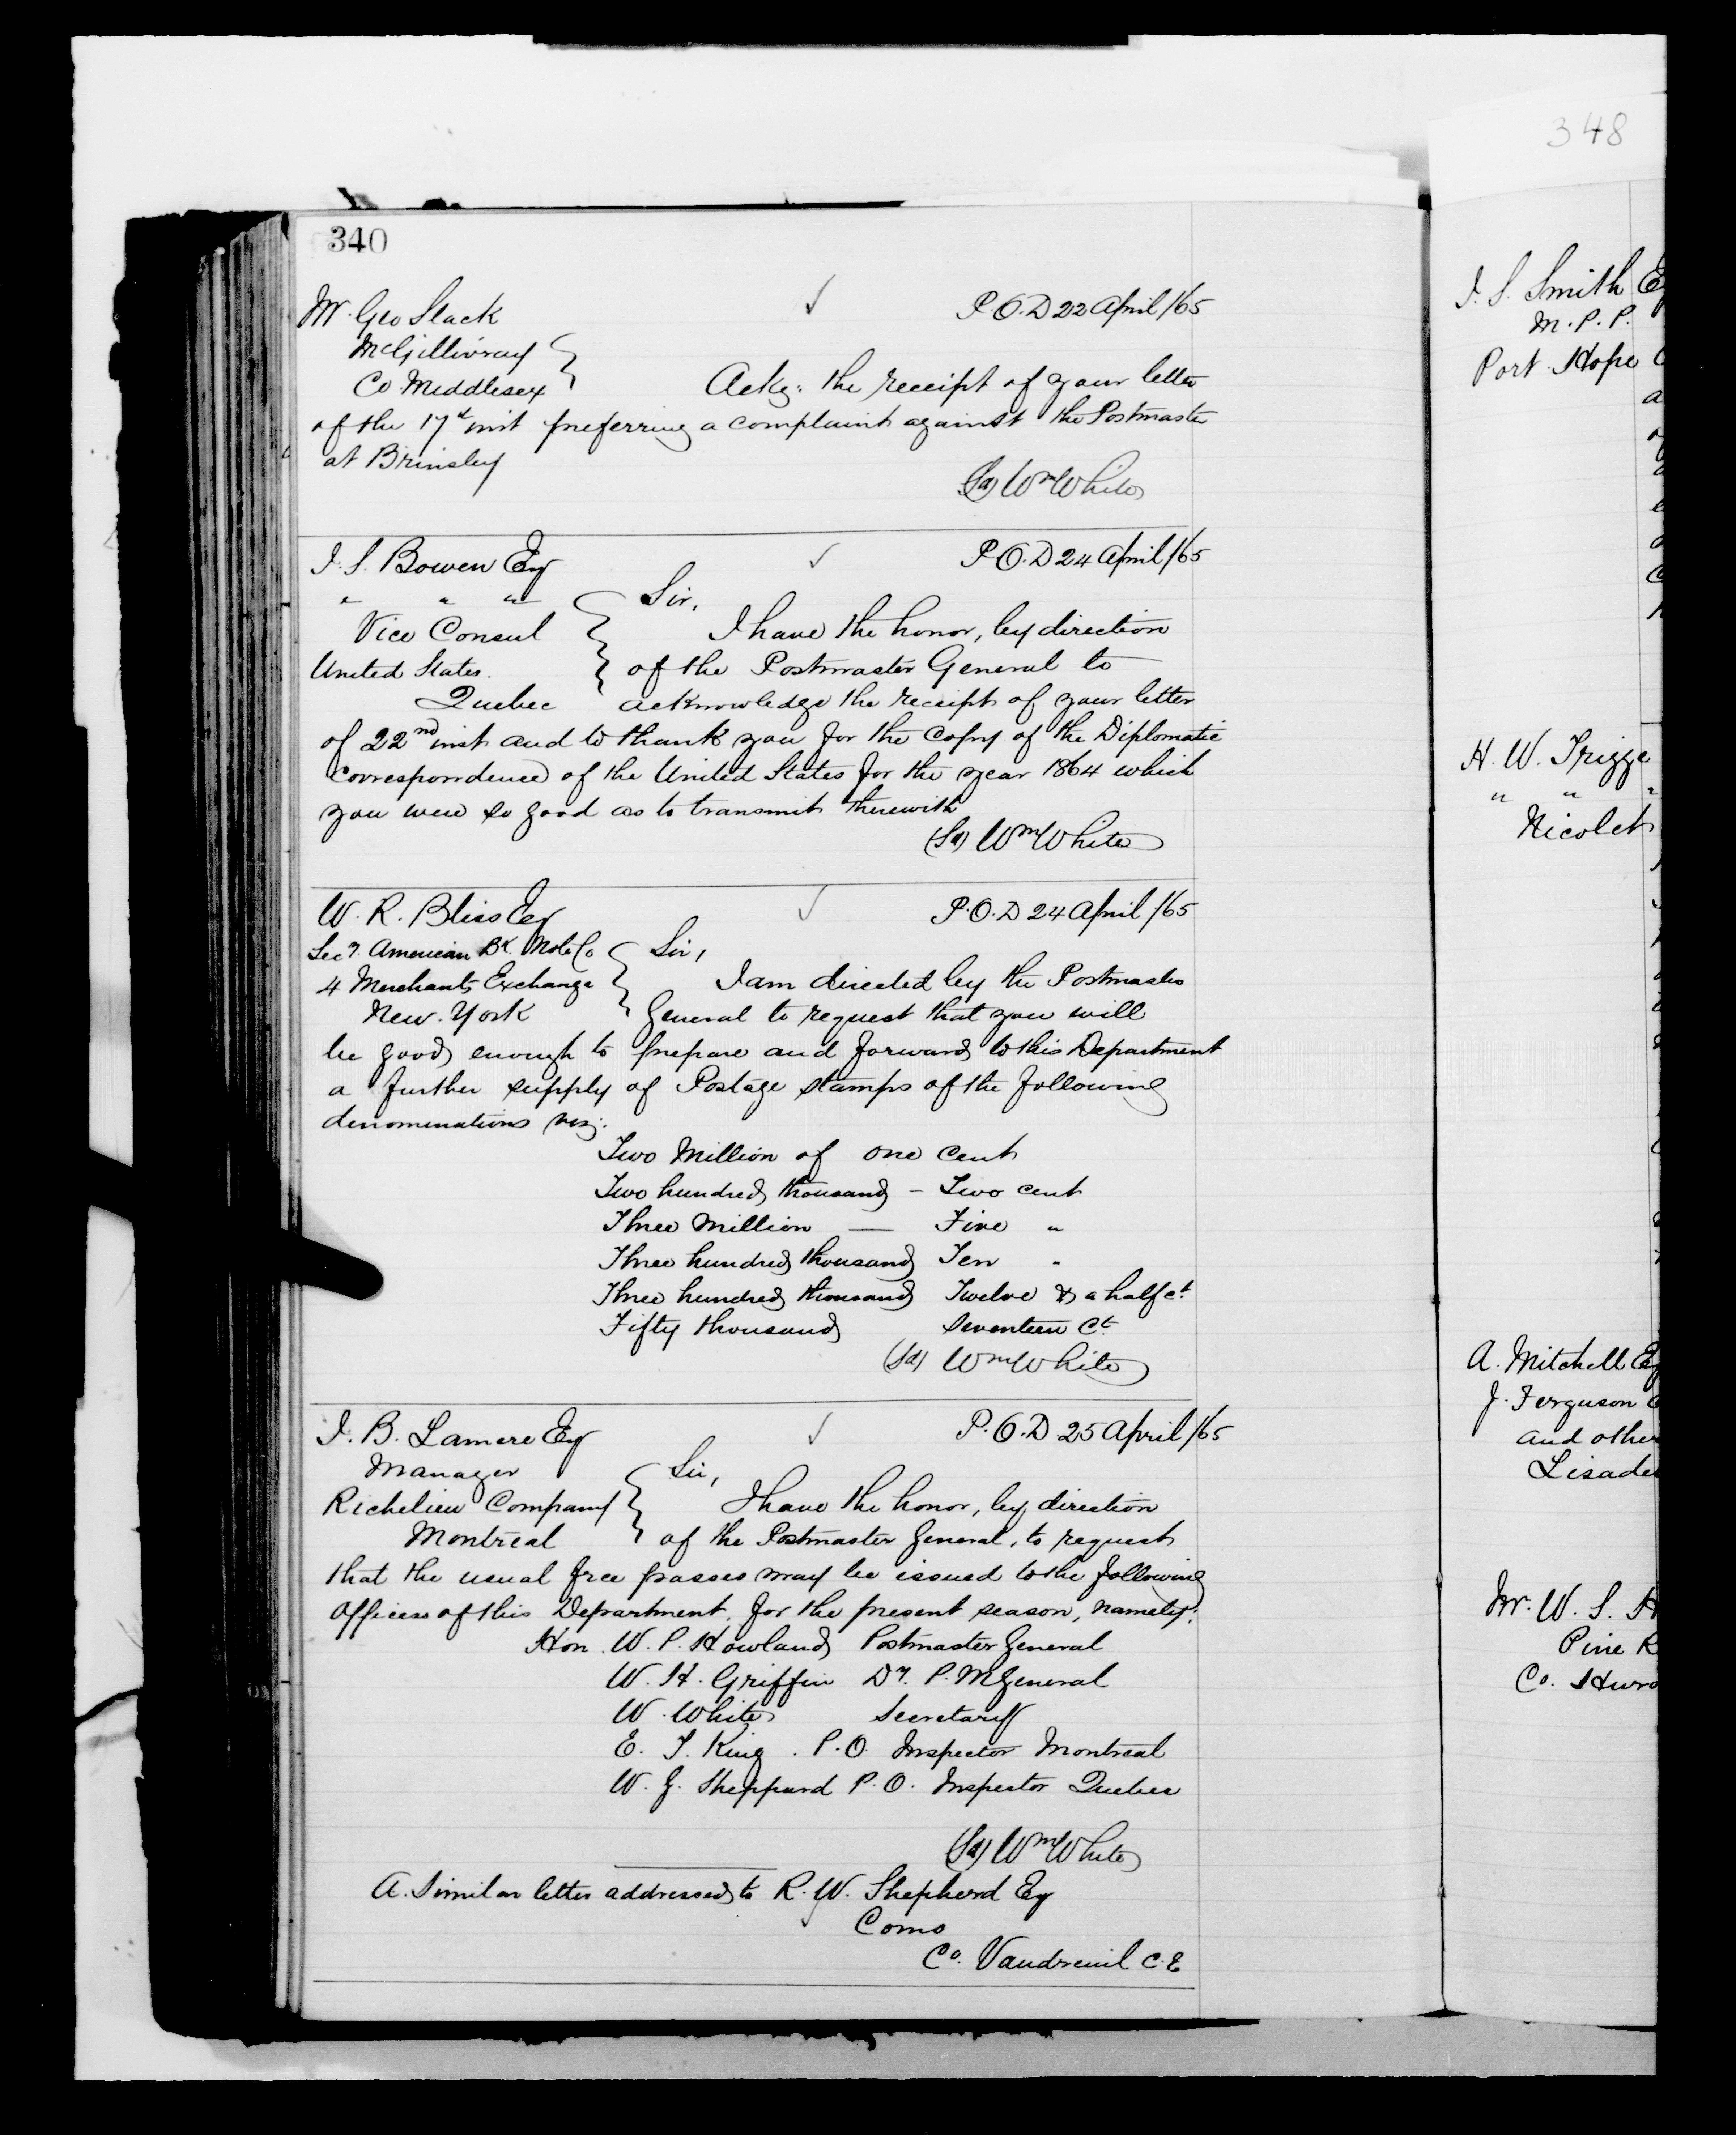 348
340
Mr. Geo Slack P.O.D 22 April /65
McGillivray
Co Middlesex Ackg: the receipt of your letter
of the 17th inst preferring a complaint against the Postmaster
at Brinsley
(Sd) Wm White
J. S. Bowen Esq P.O.D 24 April /65
" " " Sir,
Vice Consul I have the honor, by direction
United States. of the Postmaster General to
Quebec acknowledge the receipt of your letter
of 22nd inst and to thank you for the Copy of the Diplomatic
Correspondence of the United States for the year 1864 which
you were so good as to transmit therewith
(Sd) Wm White
W. R. Bliss Esq P.O.D 24 April /65
Secy. American Bk. Note Co Sir,
4 Merchants Exchange I am directed by the Postmaster
New. York General to request that you will
be good enough to prepare and forward to this Department
a further supply of Postage stamps of the following
denominations viz:
Two Million of One Cent
Two hundred thousand - Two cent
Three Million — Five "
Three hundred thousand Ten "
Three hundred thousand Twelve & a half ct.
Fifty thousand Seventeen Ct
(Sd) Wm White
J. B. Lamere Esq P.O.D 25 April /65
Manager Sir,
Richelieu Company I have the honor, by direction
Montreal of the Postmaster General, to request
that the usual free passes may be issued to the following
Officers of this Department, for the present season, namely:
Hon. W. P. Howland Postmaster General
W. H. Griffin Dy. P. M General
W. White Secretary
E. F. King. P.O. Inspector Montreal
W. G. Sheppard P.O. Inspector Quebec
(Sd) Wm White
A. Similar letter addressed to R. W. Shepherd Esq
Como
Co. Vaudreuil C.E
J. S. Smith E
M.P.P.
Port Hope
H. W. Trigge
" " "
Nicolet
A. Mitchell Esq
J. Ferguson
and other
Lisade
Mr. W. S. H
Pine R
Co. Huro